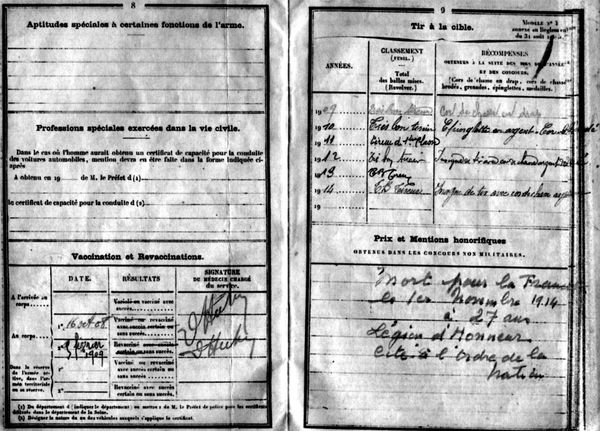 8
Aptitudes spéciales à certaines fonctions de l'arme.
Professions spéciales exercées dans la vie civile.
Dans le cas où l'homme aurait obtenu un certificat de capacité pour la conduite
des voitures automobiles, mention devra en être faite dans la forme indiquée ci-
après
A obtenu en 19 de M. le Préfet d (1)
le certificat de capacité pour la conduite d (2)
Vaccination et Revaccinations.
DATE. RÉSULTATS SIGNATURE
DU MÉDECIN CHARGÉ
du service.
A l'arrivée au
corps
Vacciné ou vacciné
avec succès.
Au corps
1° 16 oct 08 Vacciné ou revacciné
avec succès certain ou
sans succès.
2° février
1909
Revacciné avec succès
certain ou sans succès.
Dans la réserve
de l'armée ac-
tive, dans l'ar-
mée territoriale
ou sa réserve.
1° Vacciné ou revacciné
avec succès certain ou
sans succès.
2° Revacciné avec succès
certain ou sans succès.
(1) Du département d (indiquer le département) ou mettre : de M. le Préfet de police pour les certificats
délivrés dans le département de la Seine.
(2) Désigner la nature du ou des véhicules auxquels s'applique le certificat.
9
Tir à la cible.
MODÈLE N° 1
annexé au Règlement
du 31 août
ANNÉES. CLASSEMENT
(FUSIL.)
Total
des balles mises.
(Revolver.)
RÉCOMPENSES
OBTENUES A LA SUITE DES TIRS DE L'ANNÉE
ET DES CONCOURS.
(Cors de chasse en drap, cors de chasse
brodés, grenades, épinglettes, médailles.)
1909 Très bon tireur Cor de chasse en drap
1910 Très bon tireur Epinglette en argent
1911
1912 tireur
1913
1914 TB Tireur
Prix et Mentions honorifiques
OBTENUS DANS LES CONCOURS NON MILITAIRES.
Mort pour la France
le 1er Novembre 1914
à 27 ans
Légion d'Honneur
Cité à l'Ordre de la
Nation